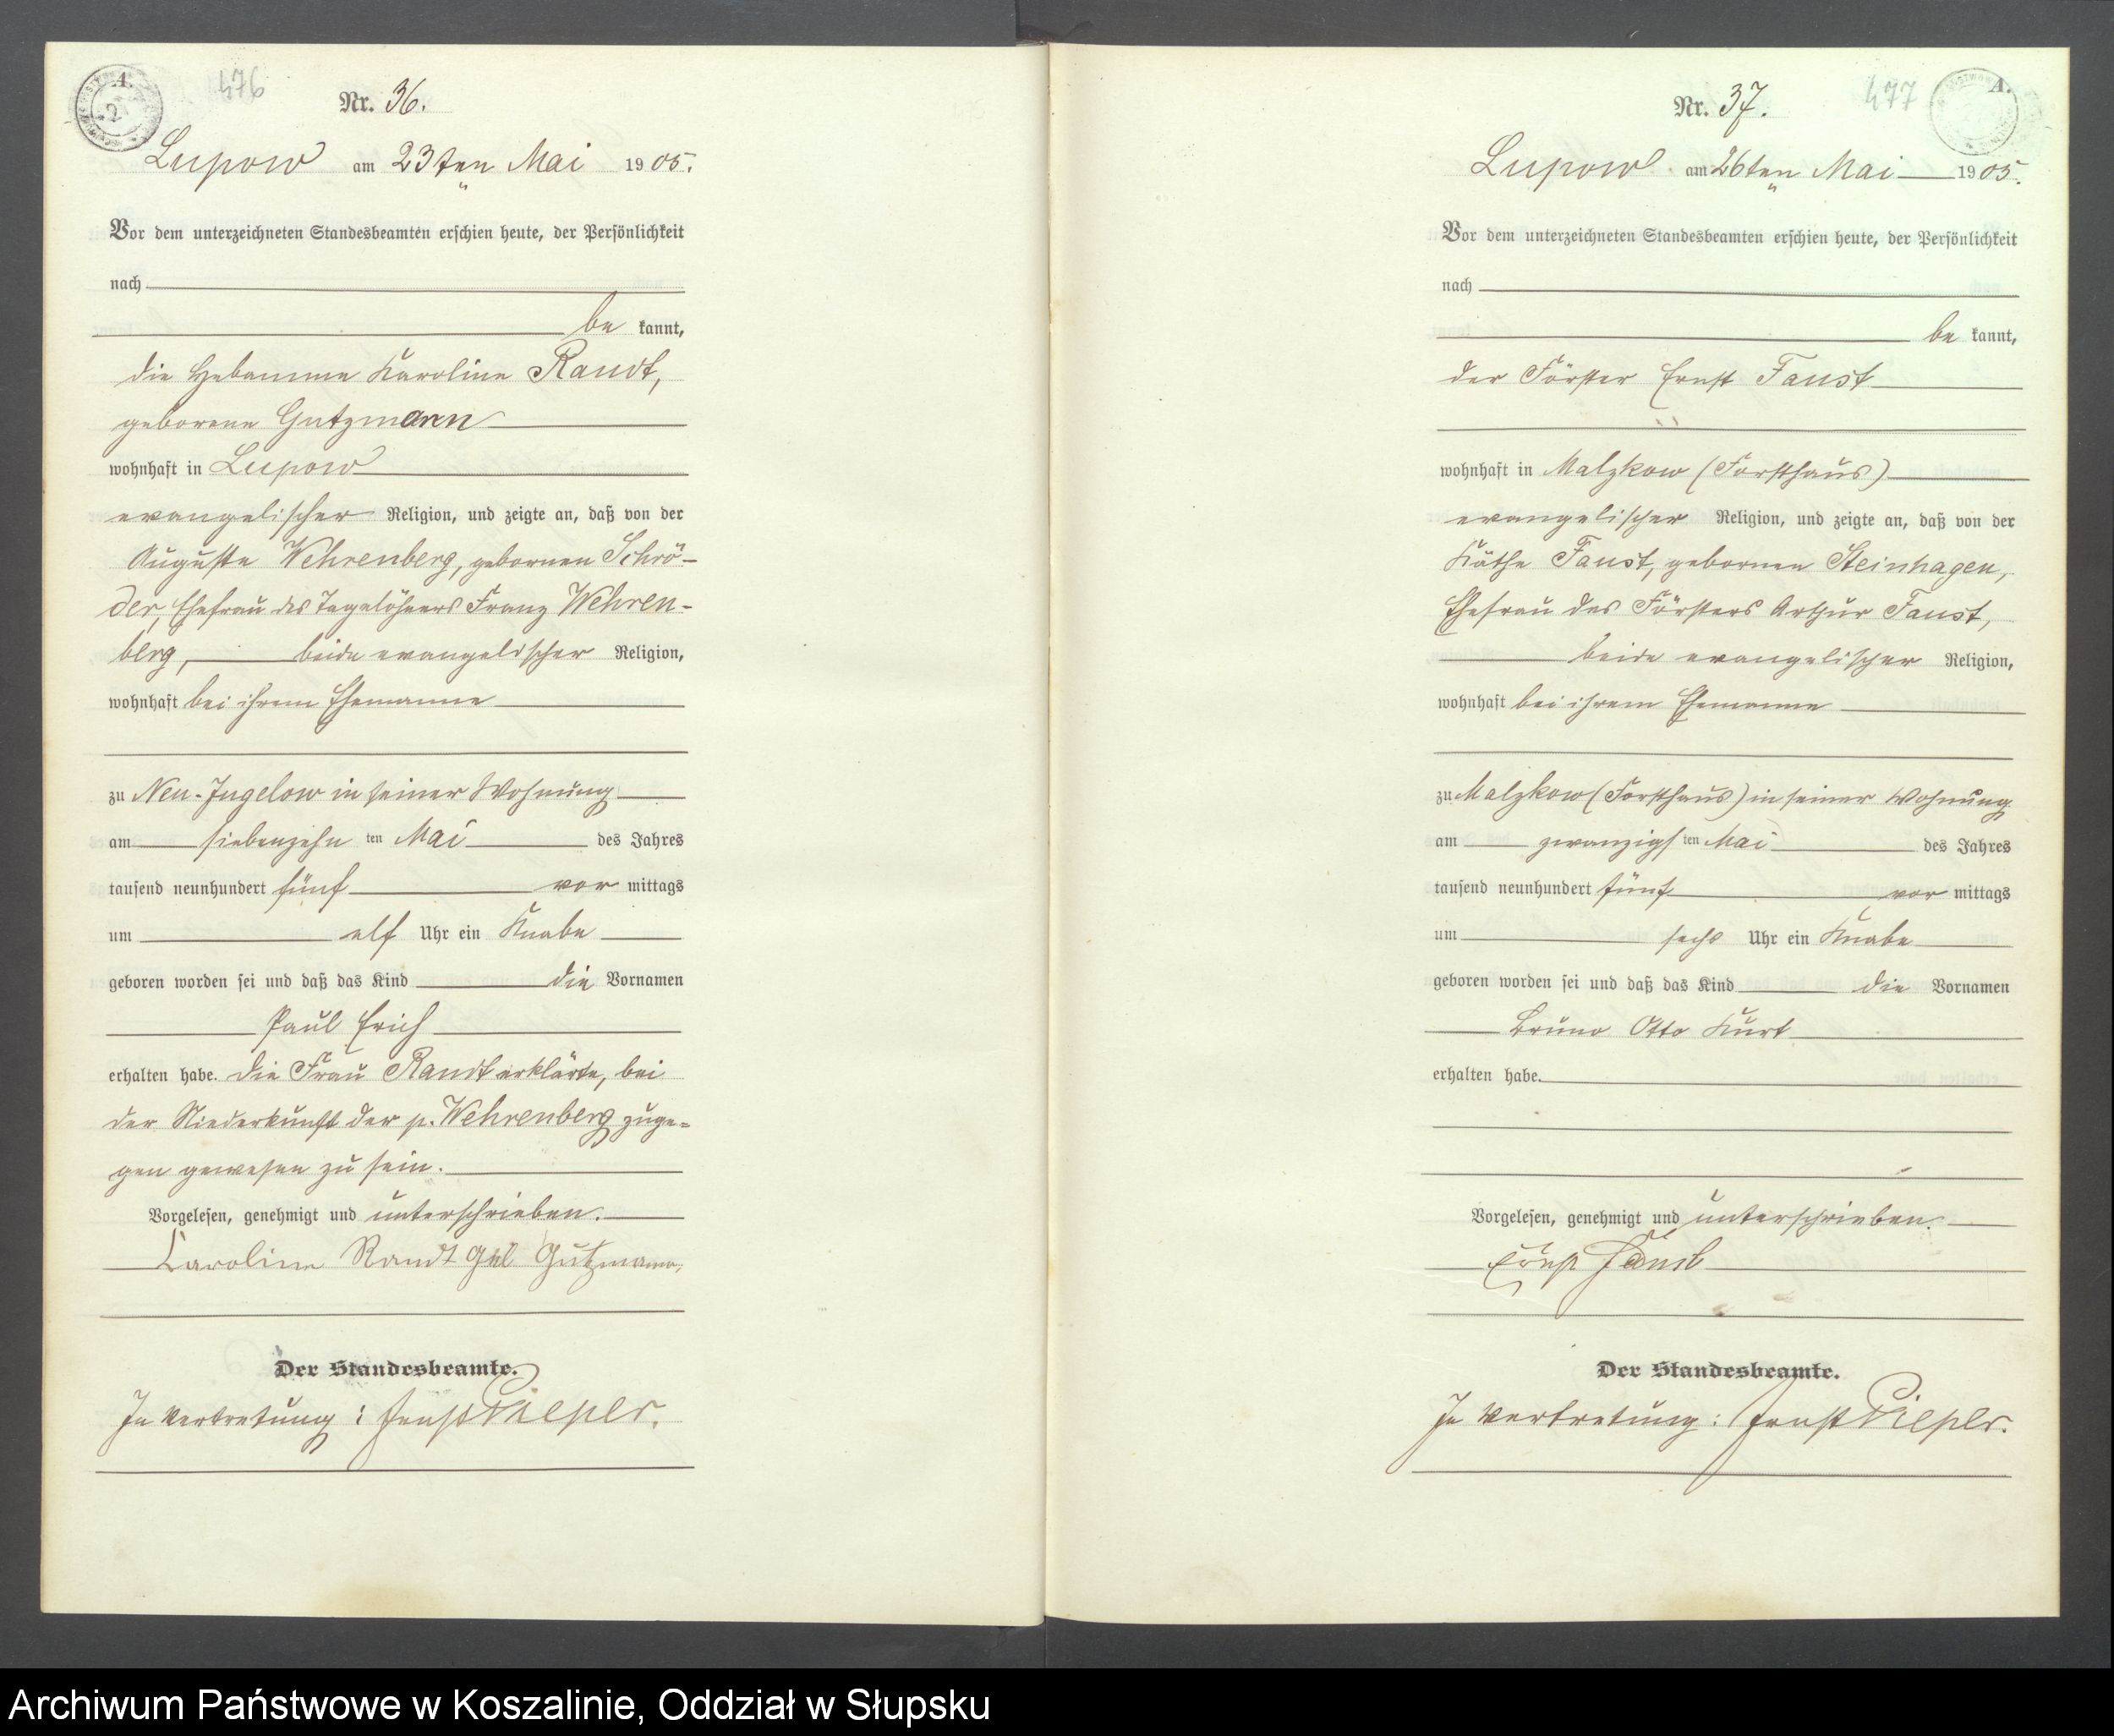 A.
476
Nr. 36.
Lupow am 23ten Mai 1905.
Vor dem unterzeichneten Standesbeamten erschien heute, der Persönlichkeit
nach
be kannt,
die Hebamme Karoline Randt,
geborene Gutzmann
wohnhaft in Lupow
evangelischer Religion, und zeigte an, daß von der
Auguste Wehrenberg, gebornen Schrö-
der, Ehefrau des Tagelöhners Franz Wehren-
berg, beide evangelischer Religion,
wohnhaft bei ihrem Ehemanne
zu Neu-Jugelow in seiner Wohnung
am siebenzehn ten Mai des Jahres
tausend neunhundert fünf vor mittags
um elf Uhr ein Knabe
geboren worden sei und daß das Kind die Vornamen
Paul Erich
erhalten habe. Die Frau Randt erklärte, bei
der Niederkunft der p. Wehrenberg zuge-
gen gewesen zu sein.
Vorgelesen, genehmigt und unterschrieben.
Caroline Randt geb Gutzmann,
Der Standesbeamte.
In Vertretung: Ernst Pieper.
Nr. 37.
477
A.
Lupow am 26ten Mai 1905.
Vor dem unterzeichneten Standesbeamten erschien heute, der Persönlichkeit
nach
be kannt,
der Förster Ernst Faust
wohnhaft in Malzkow (Forsthaus)
evangelischer Religion, und zeigte an, daß von der
Käthe Faust, gebornen Steinhagen,
Ehefrau des Försters Arthur Faust,
beide evangelischer Religion,
wohnhaft bei ihrem Ehemanne
zu Malzkow (Forsthaus) in seiner Wohnung
am zwanzigs ten Mai des Jahres
tausend neunhundert fünf vor mittags
um sechs Uhr ein Knabe
geboren worden sei und daß das Kind die Vornamen
Bruno Otto Kurt
erhalten habe.
Vorgelesen, genehmigt und unterschrieben.
Ernst Faust
Der Standesbeamte.
In Vertretung: Ernst Pieper.
Archiwum Państwowe w Koszalinie, Oddział w Słupsku